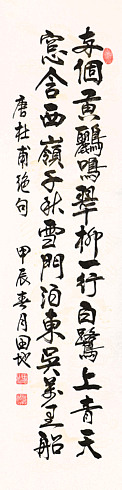 两個黄鸝鳴翠柳一行白鷺上青天
窓含西嶺千秋雪門泊東吴萬里船
唐杜甫絶句 甲辰春月田地